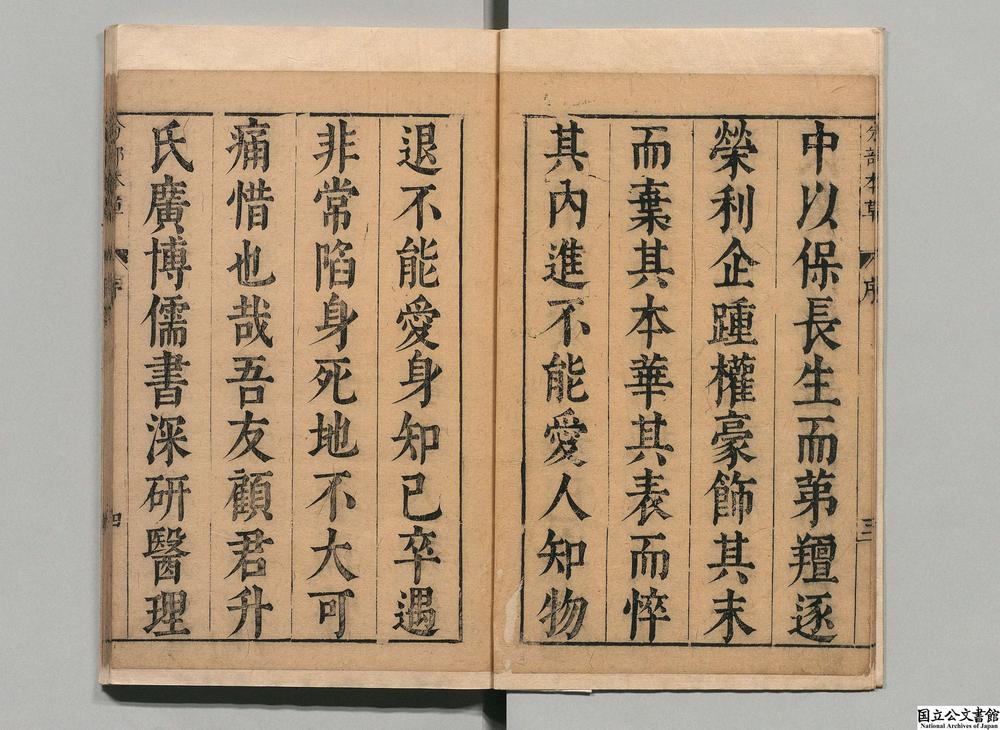 中以保長生而第羶逐
榮利企踵權豪飾其末
而棄其本華其表而悴
其內進不能愛人知物
三
退不能愛身知己卒遇
非常陷身死地不大可
痛惜也哉吾友顧君升
氏廣博儒書深研醫理
四
国立公文書館
National Archives of Japan